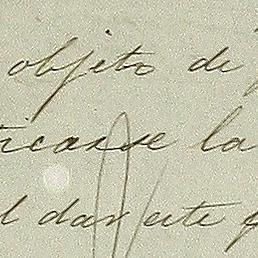 objeto de
ticarse la
l dar este